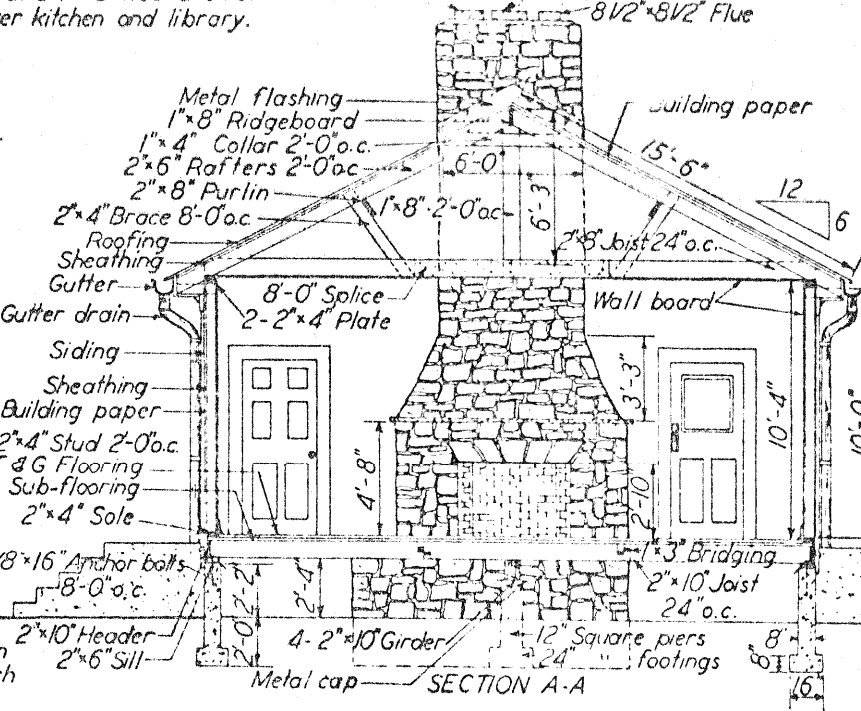 er kitchen and library.
8 1/2" x 8 1/2" Flue
Metal flashing
1" x 8" Ridgeboard
1" x 4" Collar 2'-0" o.c.
2" x 6" Rafters 2'-0" o.c
2" x 8" Purlin
2" x 4" Brace 8'-0" o.c.
Roofing
Sheathing
Gutter
Gutter drain
Siding
Sheathing
Building paper
2" x 4" Stud 2'-0" o.c.
& G Flooring
Sub-flooring
2" x 4" Sole
8" x 16" Anchor bolts
8'-0" o.c.
2" x 10" Header
2" x 6" Sill
6'-0
6'-3
1" x 8" - 2'-0" o.c
2" x 8" Joist 24" o.c.
8'-0" Splice
2 - 2" x 4" Plate
uilding paper
15'-6"
12
6
Wall board
3'-3"
4'-8"
2'-10
10'-4"
10'-0"
2'-2"
2'-0"
2'-4"
1" x 3" Bridging
2" x 10" Joist
24" o.c.
4 - 2" x 10" Girder
12" Square piers
24" footings
Metal cap
8"
8"
16
SECTION A-A